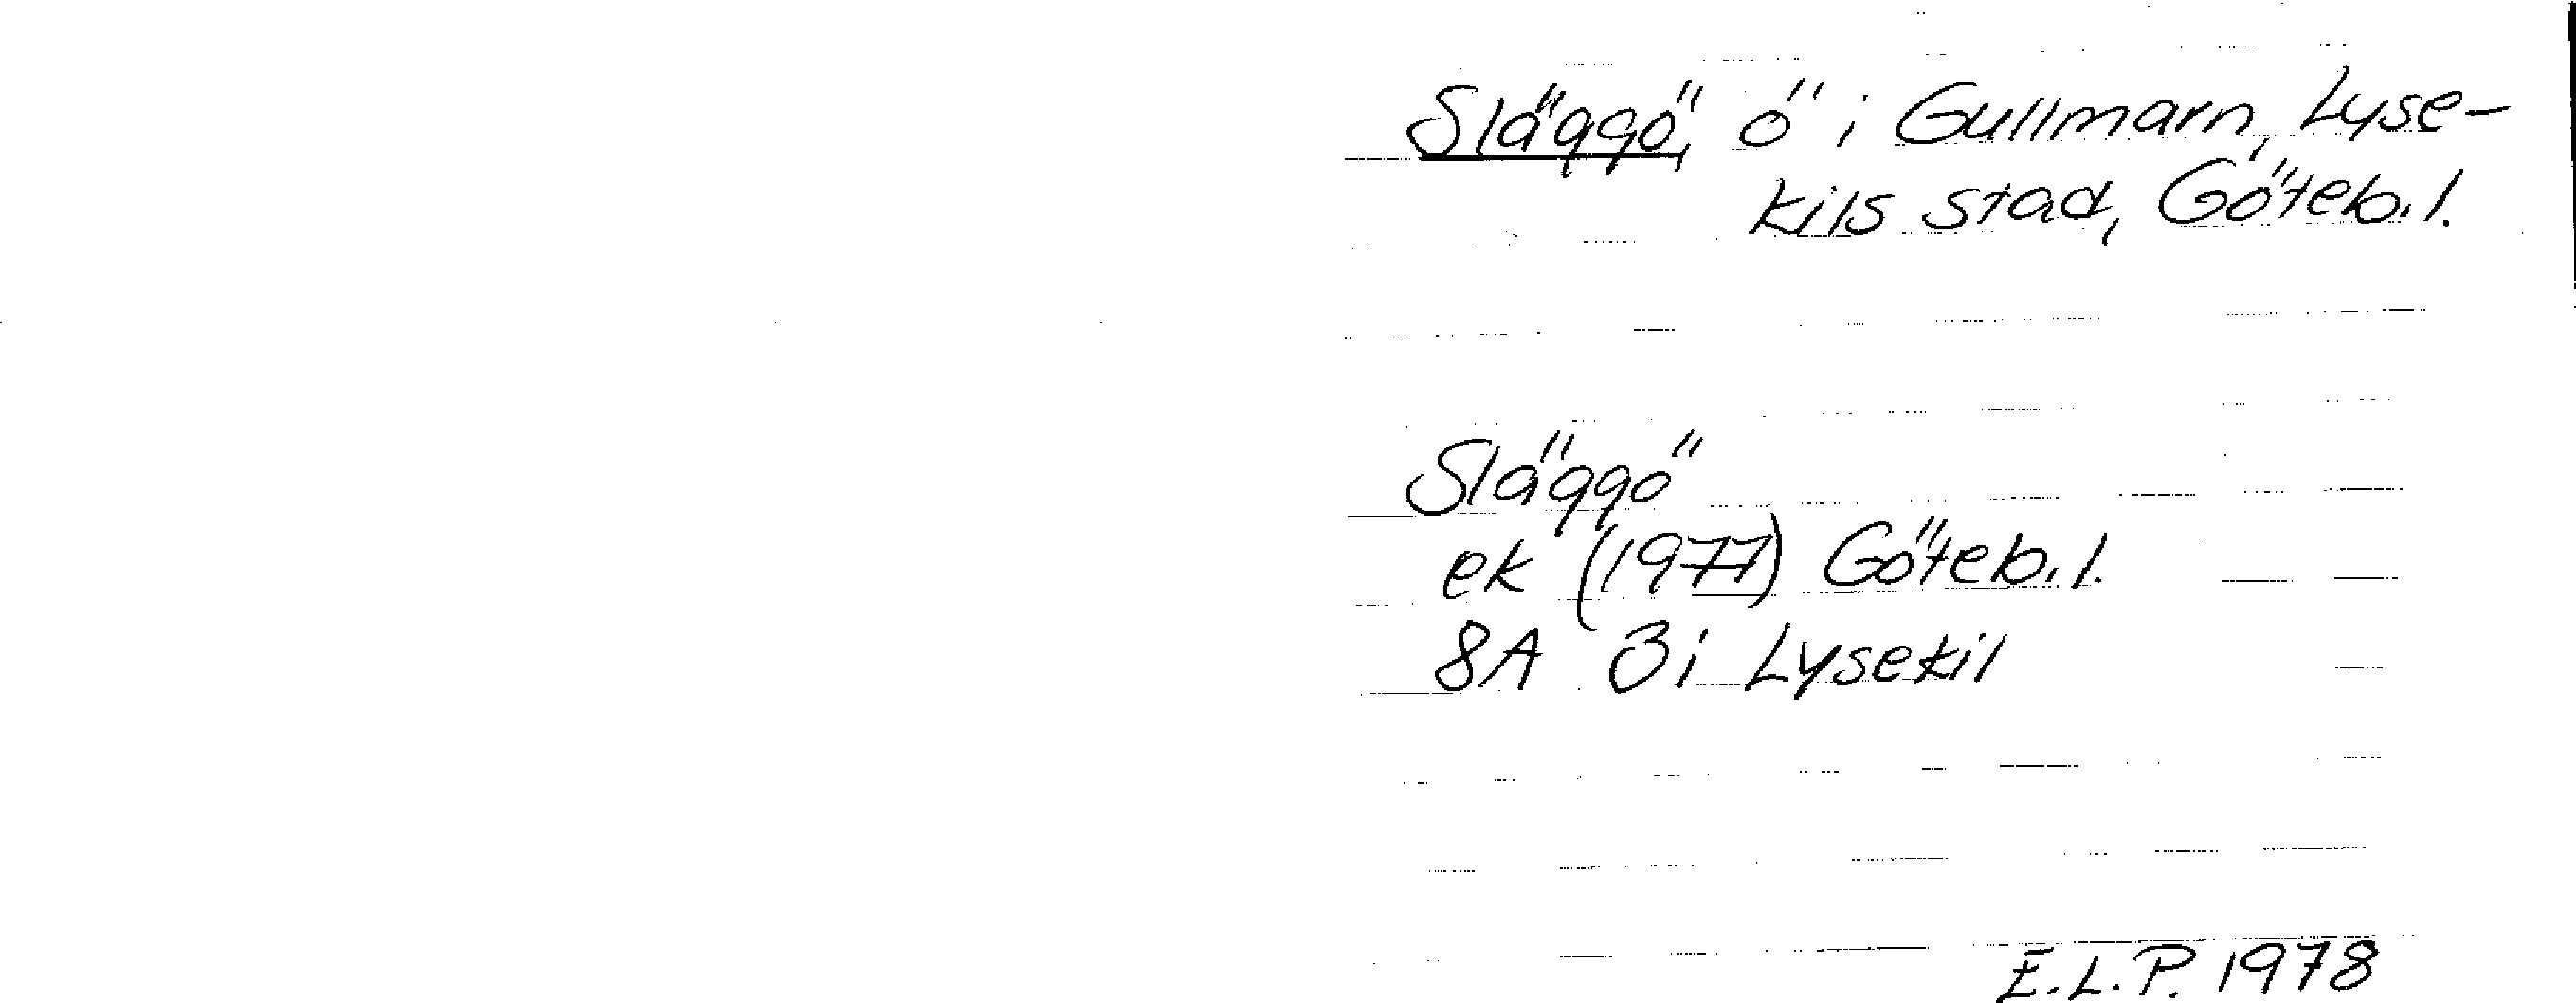 Släggö, ö i Gullmarn, Lyse-
kils stad, Göteb. l.
Släggö
ek (1977) Göteb. l.
8A 3i Lysekil
E.L.P. 1978